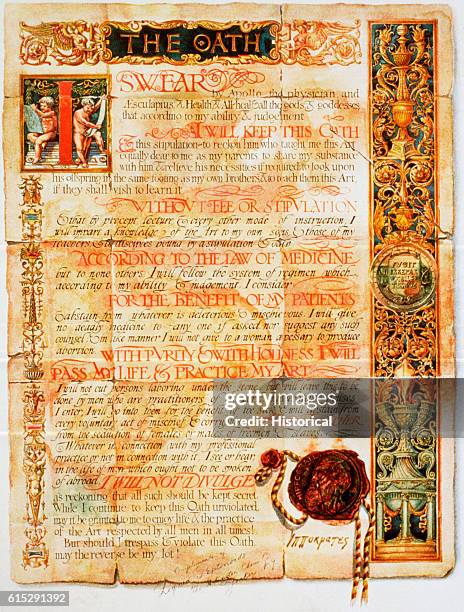 THE OATH
I SWEAR
by Apollo, the physician, and
Æsculapius & Health & All-heal & all the gods & goddesses
that according to my ability & judgement
I WILL KEEP THIS OATH
& this stipulation~to reckon him who taught me this Art
equally dear to me as my parents to share my substance
with him & relieve his necessities if required to look upon
his offspring in the same footing as my own brothers & to teach them this Art,
if they shall wish to learn it
WITHOUT FEE OR STIPULATION
& that by precept lecture & every other mode of instruction, I
will impart a knowledge of the Art to my own sons & those of my
teachers & to disciples bound by a stipulation & oath
ACCORDING TO THE LAW OF MEDICINE
but to none others I will follow the system of regimen which
according to my ability & judgement I consider
FOR THE BENEFIT OF MY PATIENTS
& abstain from whatever is deleterious & mischievous. I will give
no deadly medicine to any one if asked nor suggest any such
counsel & in like manner I will not give to a woman a pessary to produce
abortion
WITH PURITY & WITH HOLINESS I WILL
PASS MY LIFE & PRACTICE MY ART
I will not cut persons laboring under the stone, but will leave this to be
done by men who are practitioners
I enter I will go into them for the benefit of the sick & will abstain from
every voluntary act of mischief & corruption
from the seduction of females or males of freemen & slaves
Whatever in connection with my professional
practice or not in connection with it I see or hear
in the life of men which ought not to be spoken
of abroad I WILL NOT DIVULGE
as reckoning that all such should be kept secret
While I continue to keep this Oath unviolated
may it be granted to me to enjoy life & the practice
of the Art respected by all men in all times!
But should I trespass & violate this Oath
may the reverse be my lot!
Ιπποκρατες
gettyimages
Credit: Historical
615291392